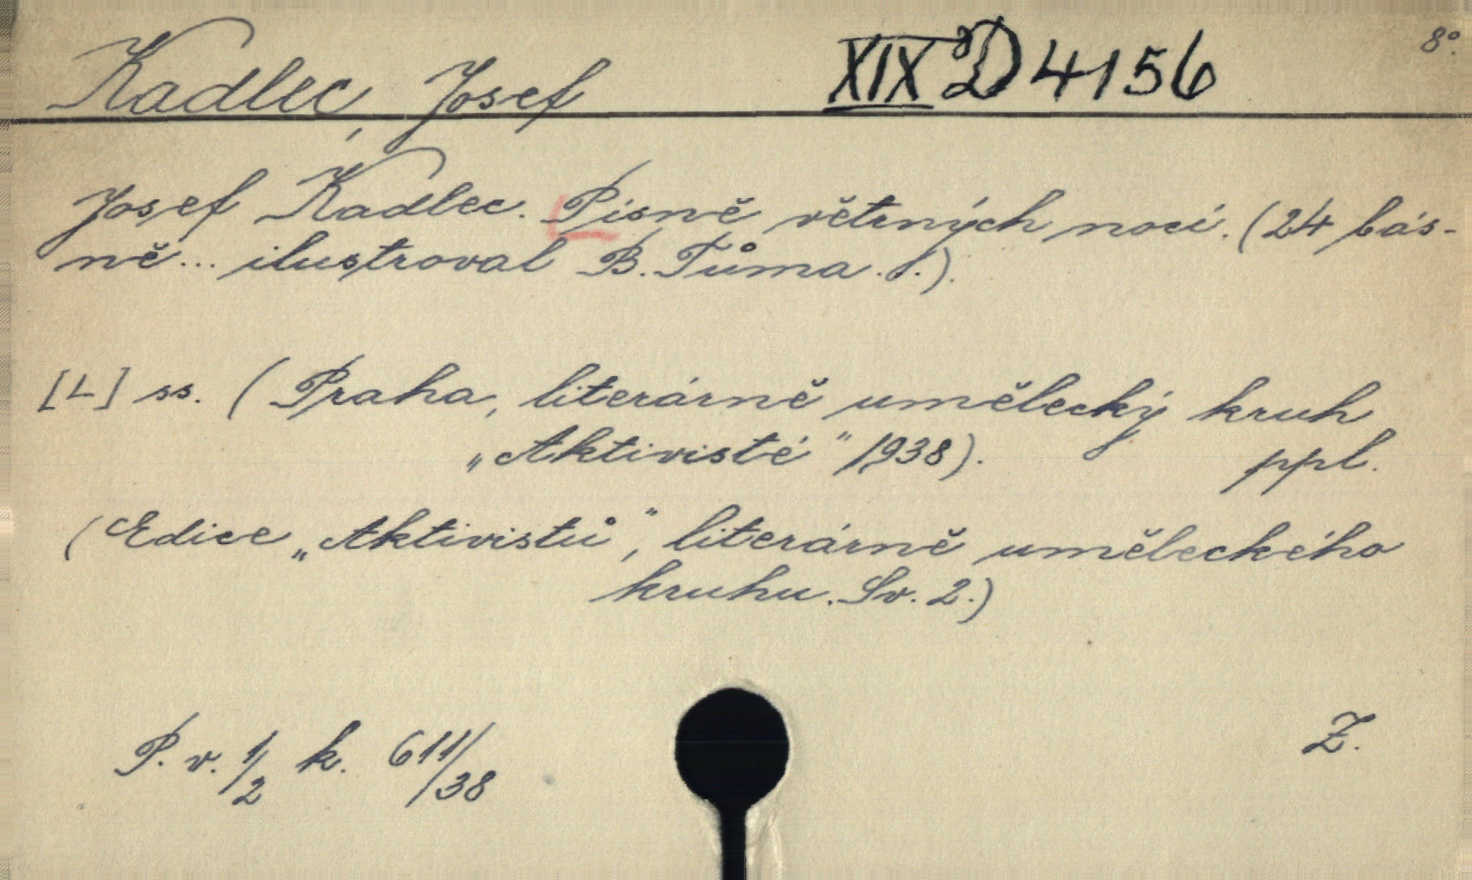 Kadlec, Josef XIX D 4156 8°.
Josef Kadlec. Písně větrných nocí. (24 bás-
ně... ilustroval B. Tůma.
[L] ss. (Praha, literárně umělecký kruh
„Aktivisté" 1938). ppl.
(Edice „Aktivistů", literárně uměleckého
kruhu. Sv. 2.)
P. v. 1/2 k. 611/38 Z.